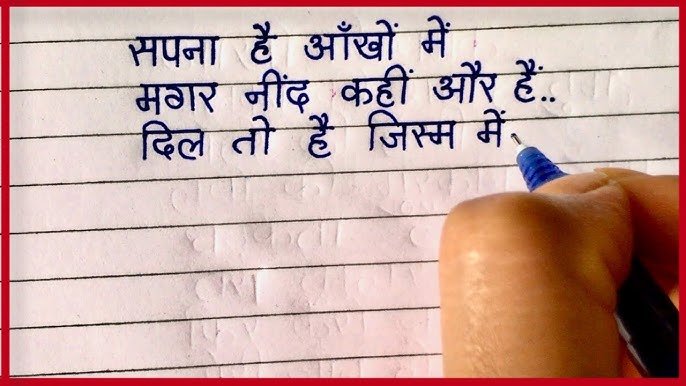 सपना है आँखों में
मगर नींद कहीं और हैं..
दिल तो है जिस्म में